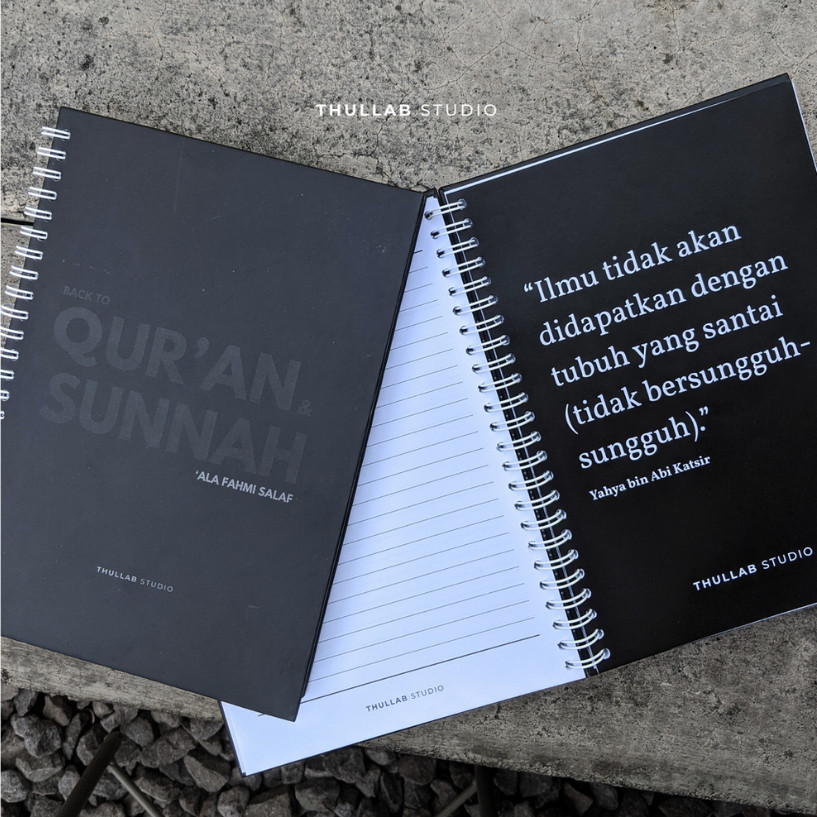 THULLAB STUDIO
BACK TO
QUR'AN
&
SUNNAH
'ALA FAHMI SALAF
THULLAB STUDIO
THULLAB STUDIO
“Ilmu tidak akan
didapatkan dengan
tubuh yang santai
(tidak bersungguh-
sungguh).”
Yahya bin Abi Katsir
THULLAB STUDIO